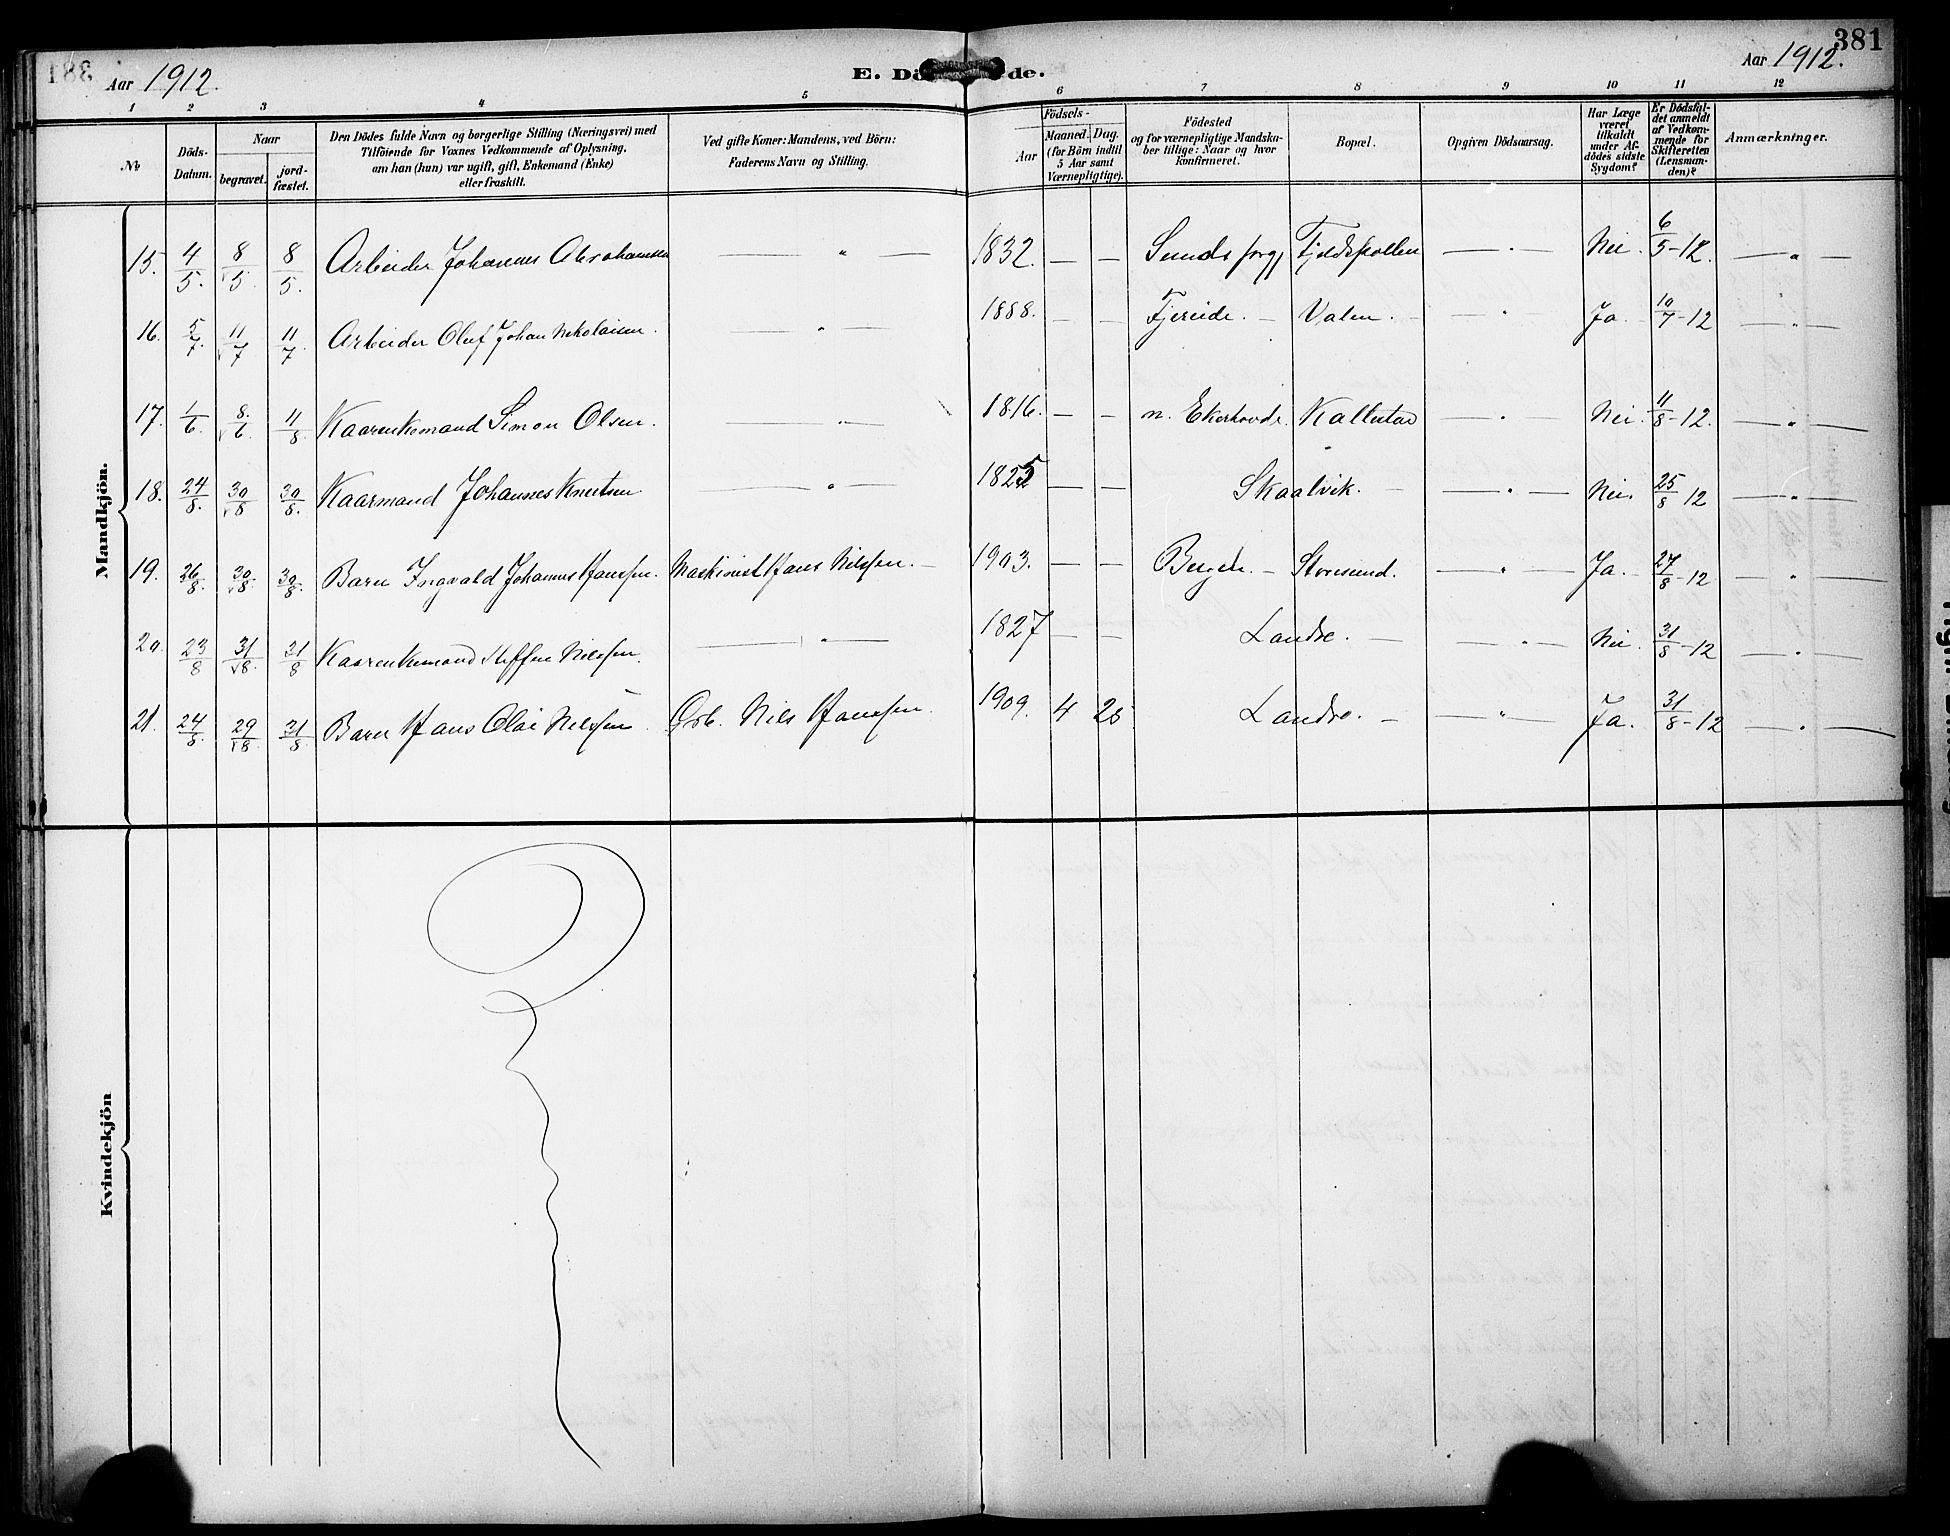 381
Aar 1912.
E. Dö de.
Aar 1912.
1 2 3 4 5 6 7 8 9 10 11 12
No
Döds-Datum.
Naar
begravet.
jord-fæstet.
Den Dödes fulde Navn og borgerlige Stilling (Næringsvei) med
Tilföiende for Voxnes Vedkommende af Oplysning,
om han (hun) var ugift, gift, Enkemand (Enke)
eller fraskilt.
Ved gifte Koner: Mandens, ved Börn:
Faderens Navn og Stilling.
Födsels-
Aar
Maaned. Dag.
(for Börn indtil
5 Aar samt
Værnepligtige).
Födested
og for værnepligtige Mandska-
ber tillige: Naar og hvor
konfirmeret.
Bopæl.
Opgiven Dödsaarsag.
Har Læge
været
tilkaldt
under Af-
dödes sidste
Sygdom?
Er Dödsfal-
det anmeldt
af Vedkom-
mende for
Skifteretten
(Lensman-
den)?
Anmærkninger.
Mandkjön.
15. 4/5. 8/5. 8/5. Arbeider Johannes Abrahamsen — " — 1832. — — Sund Fjeldspollen — " — Nei. 6/5-12. — " —
16. 5/7. 11/7 11/7 Arbeider Oluf Johan Nikolaisen. — " — 1888. — — Fjereide. — Valen. — — " — Ja. 10/7-12 — " —
17. 1/6. 8./6. 11/8 Kaarenkemand Simon Olsen. — " — 1816. — — n. Ekerhovde. Kallestad — " — Nei. 11/8-12. — " —
18. 24/8. 30/8 30/8. Kaarmand Johannes Knutsen — " — 1825 — — Skaalvik. — — " — Nei. 25/8-12 — " —
19. 26/8. 30/8. 30/8. Barn Ingvald Johannes Hanssen. Maskinist Hans Nilssen. — 1903. — — Bergen. — Storesund. — " — Ja. — 27/8-12 — " —
20. 23/8 31/8. 31/8 Kaarenkemand Steffen Nilssen. — " — 1827 — — Landro. — — " — Nei. 31/8-12 — " —
21. 24/8. 29/8. 31/8 Barn Hans Olai Nilssen. Arb. Nils Hanssen. 1909. 4 25 Landro. — — " — Ja. 31/8-12 — " —
Kvindekjön